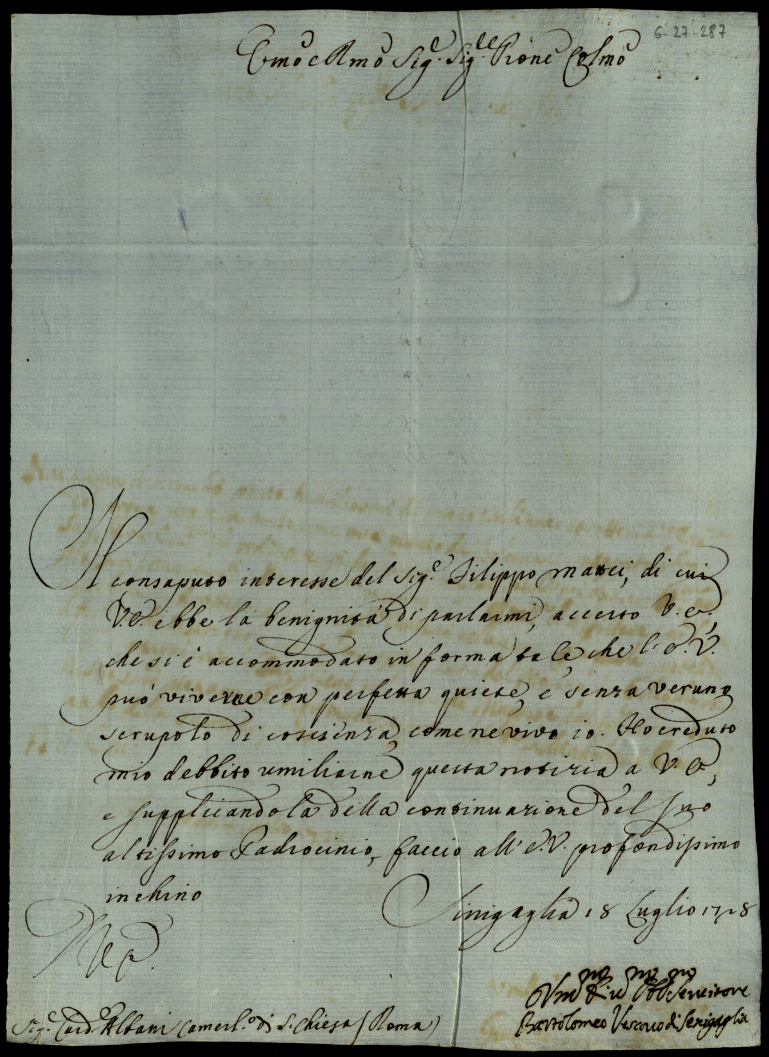 6-27-287
Emo e Rmo Sig.e Sig.le Prone Colmo
Il consaputo interesse del Sig.e Filippo Mattei, di cui
V.E. ebbe la benignità di parlarmi, accerto V.E.
che si è accommodato in forma tale, che l'E.V.
può viverne con perfetta quiete, e senza veruno
scrupolo di coscienza, come ne vivo io. Ho creduto
mio debbito umiliarne questa notizia a V.E.,
e supplicandola della continuazione del suo
altissimo Padrocinio, faccio all'E.V. profondissimo
inchino
Sinigaglia 18 Luglio 1728
Umo Obbmo Servitore
Sig.e Card. Albani Camerl.o di S. Chiesa (Roma)
Bartolomeo Vescovo di Senigaglia